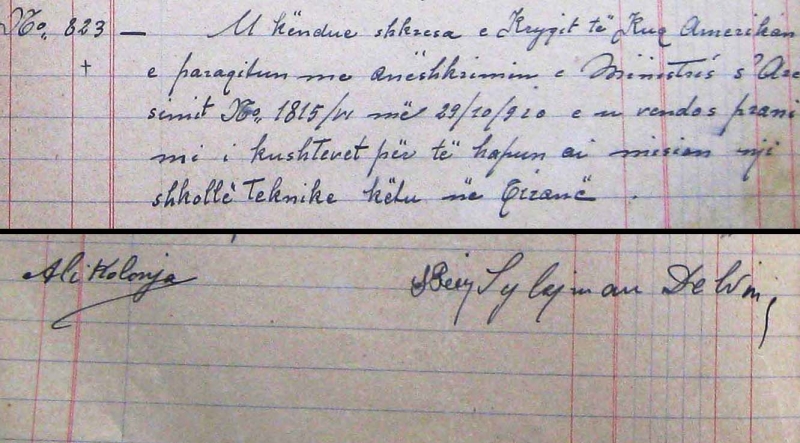 No. 823 — U këndue shkresa e Kryqit të Kuq Amerikan
+ e paraqitun me anëshkrimin e Ministris s' Are
simit No. 1815/IV më 29/10/920 e u vendos prani
mi i kushtevet për të hapun ai mision nji
shkollë teknike këtu në Tiranë .
Ali Kolonja Sylejman Delvin,